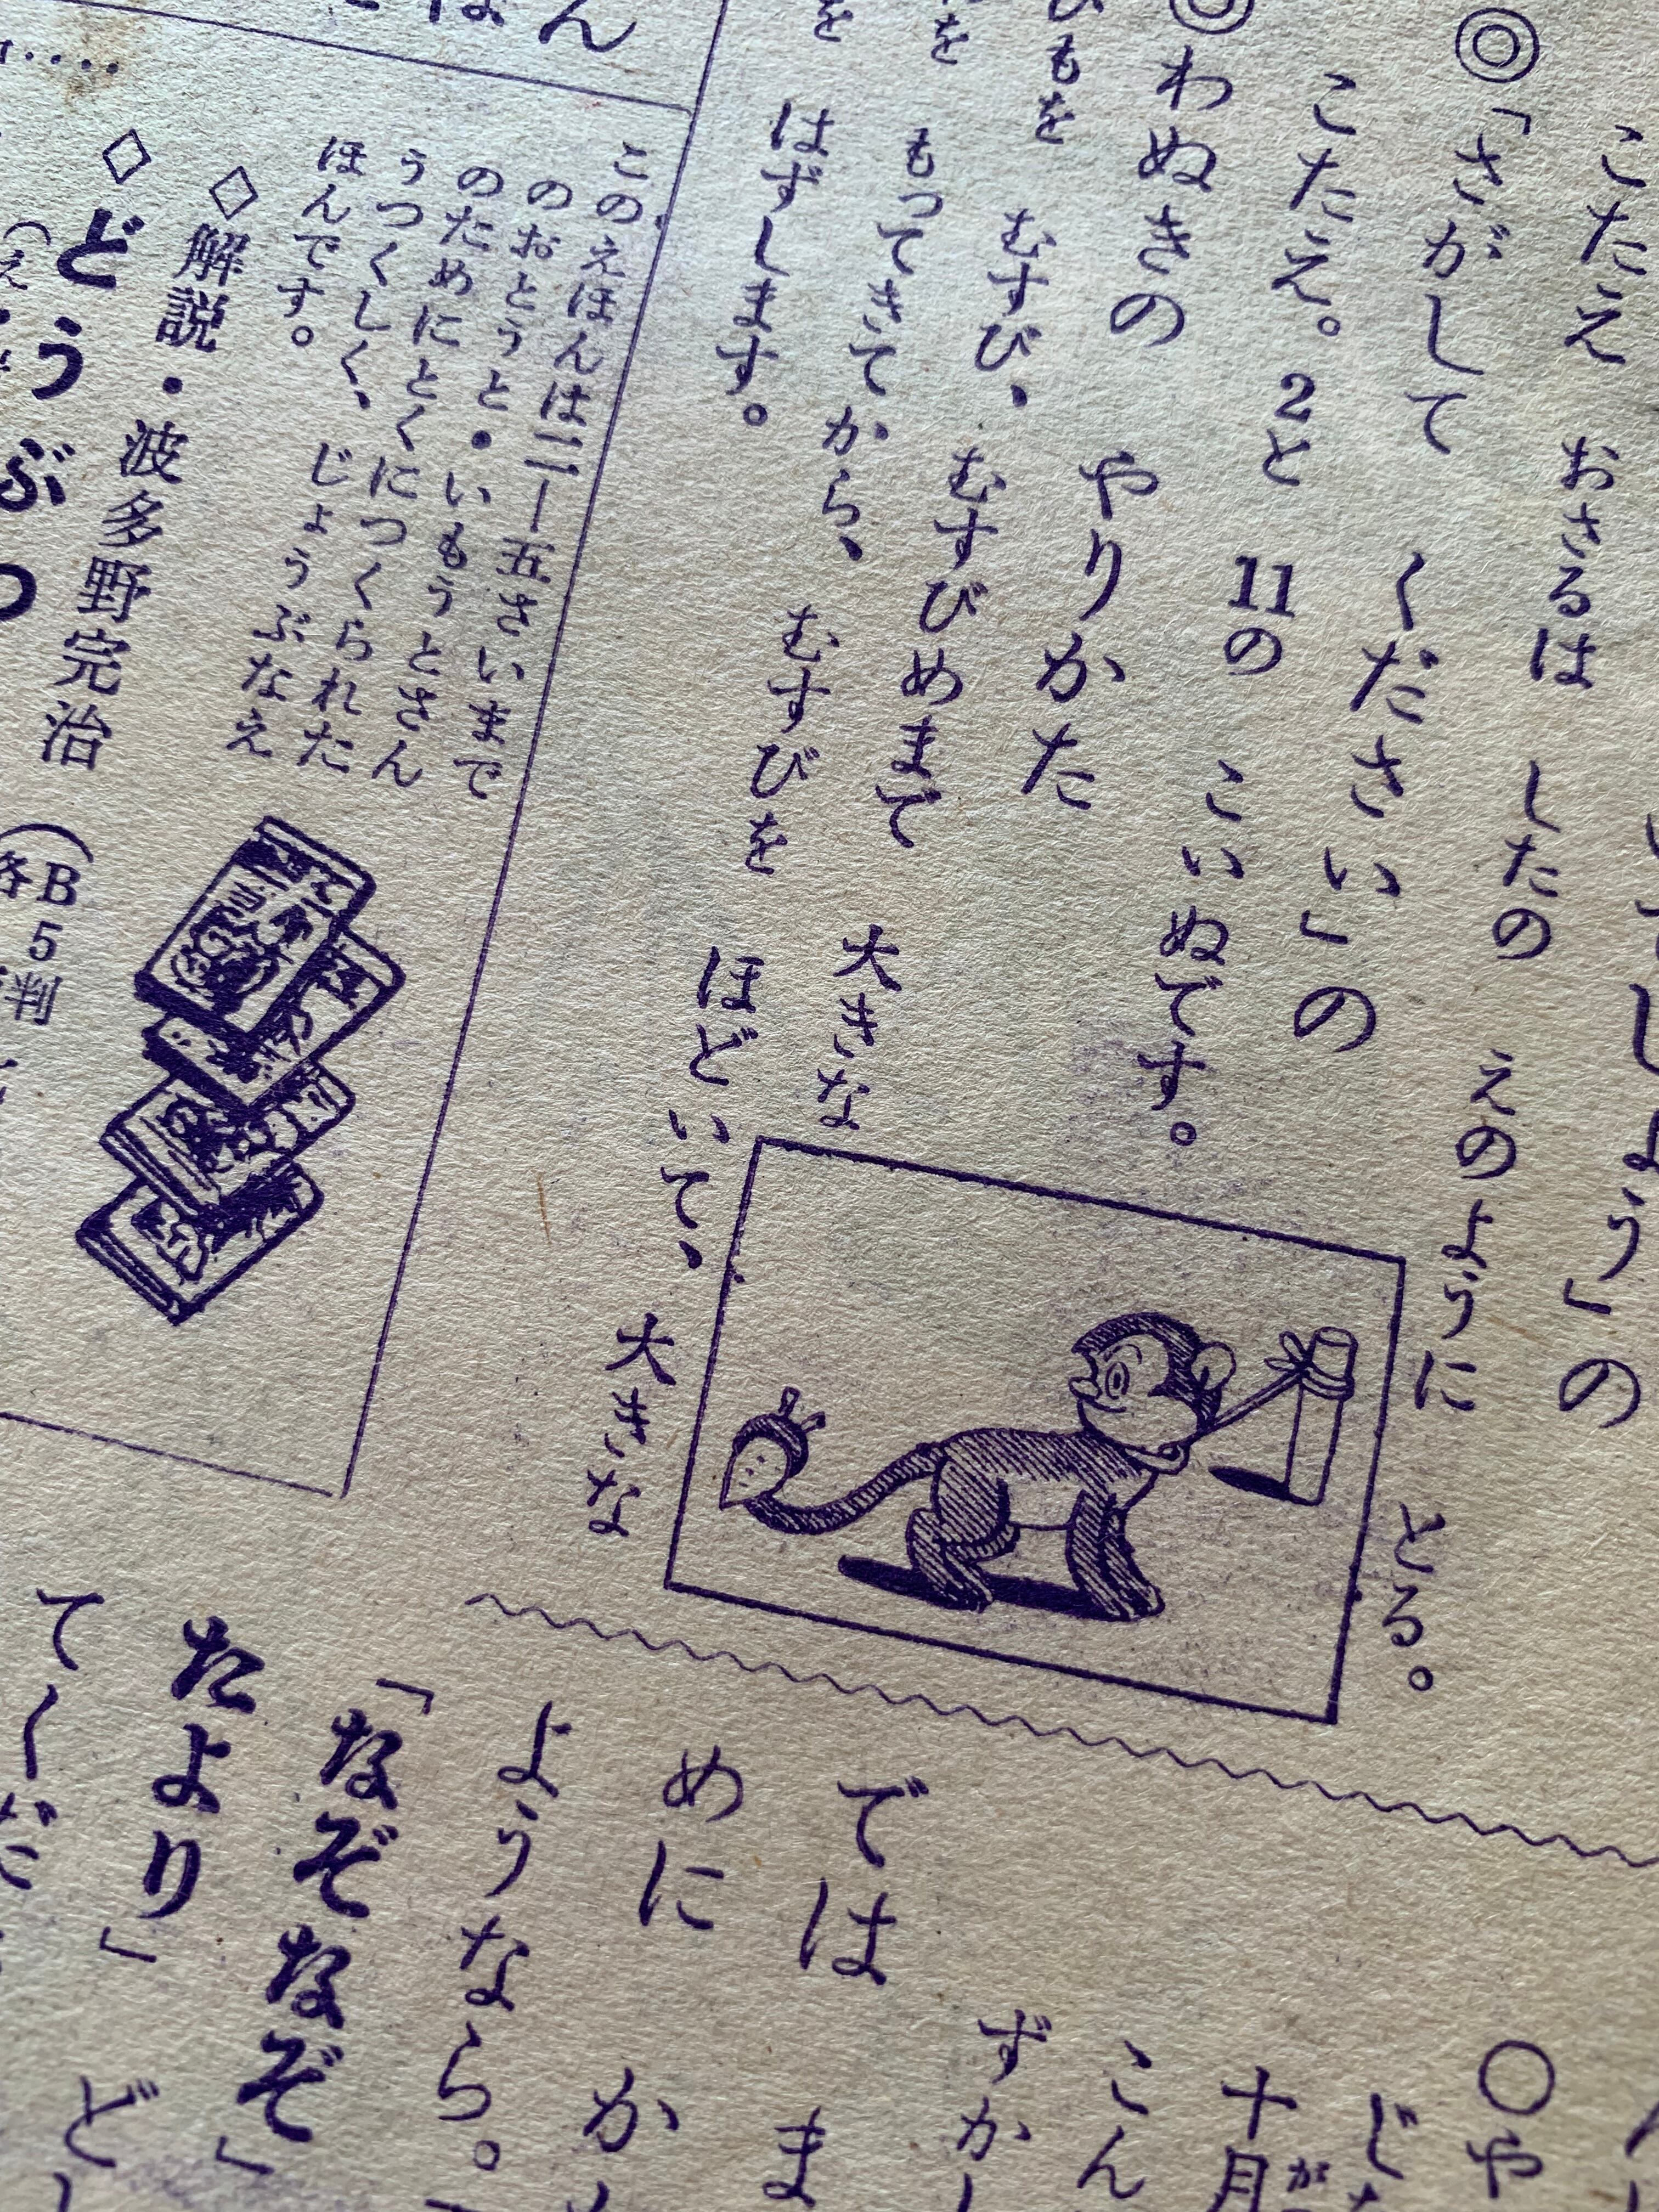 しょう」の
こたえ　おさるは　したの　えのように　とる。
◎「さがして　ください」の
こたえ。2と　11の　こいぬです。
◎わぬきの　やりかた
ひもを　むすび、むすびめまで　大きな
を　もってきてから、むすびを　ほどいて、大きな
を　はずします。
ほん
このえほんは二―五さいまで
のおとうと・いもうとさん
のためにとくにつくられた
うつくしく、じょうぶなえ
ほんです。
◇解説・波多野完治
◇どうぶつ
(各B5判
○や
十月
がつ
こん
ずか
では　ま
めに　か
ようなら。
「なぞなぞ」
たより」
てくだ